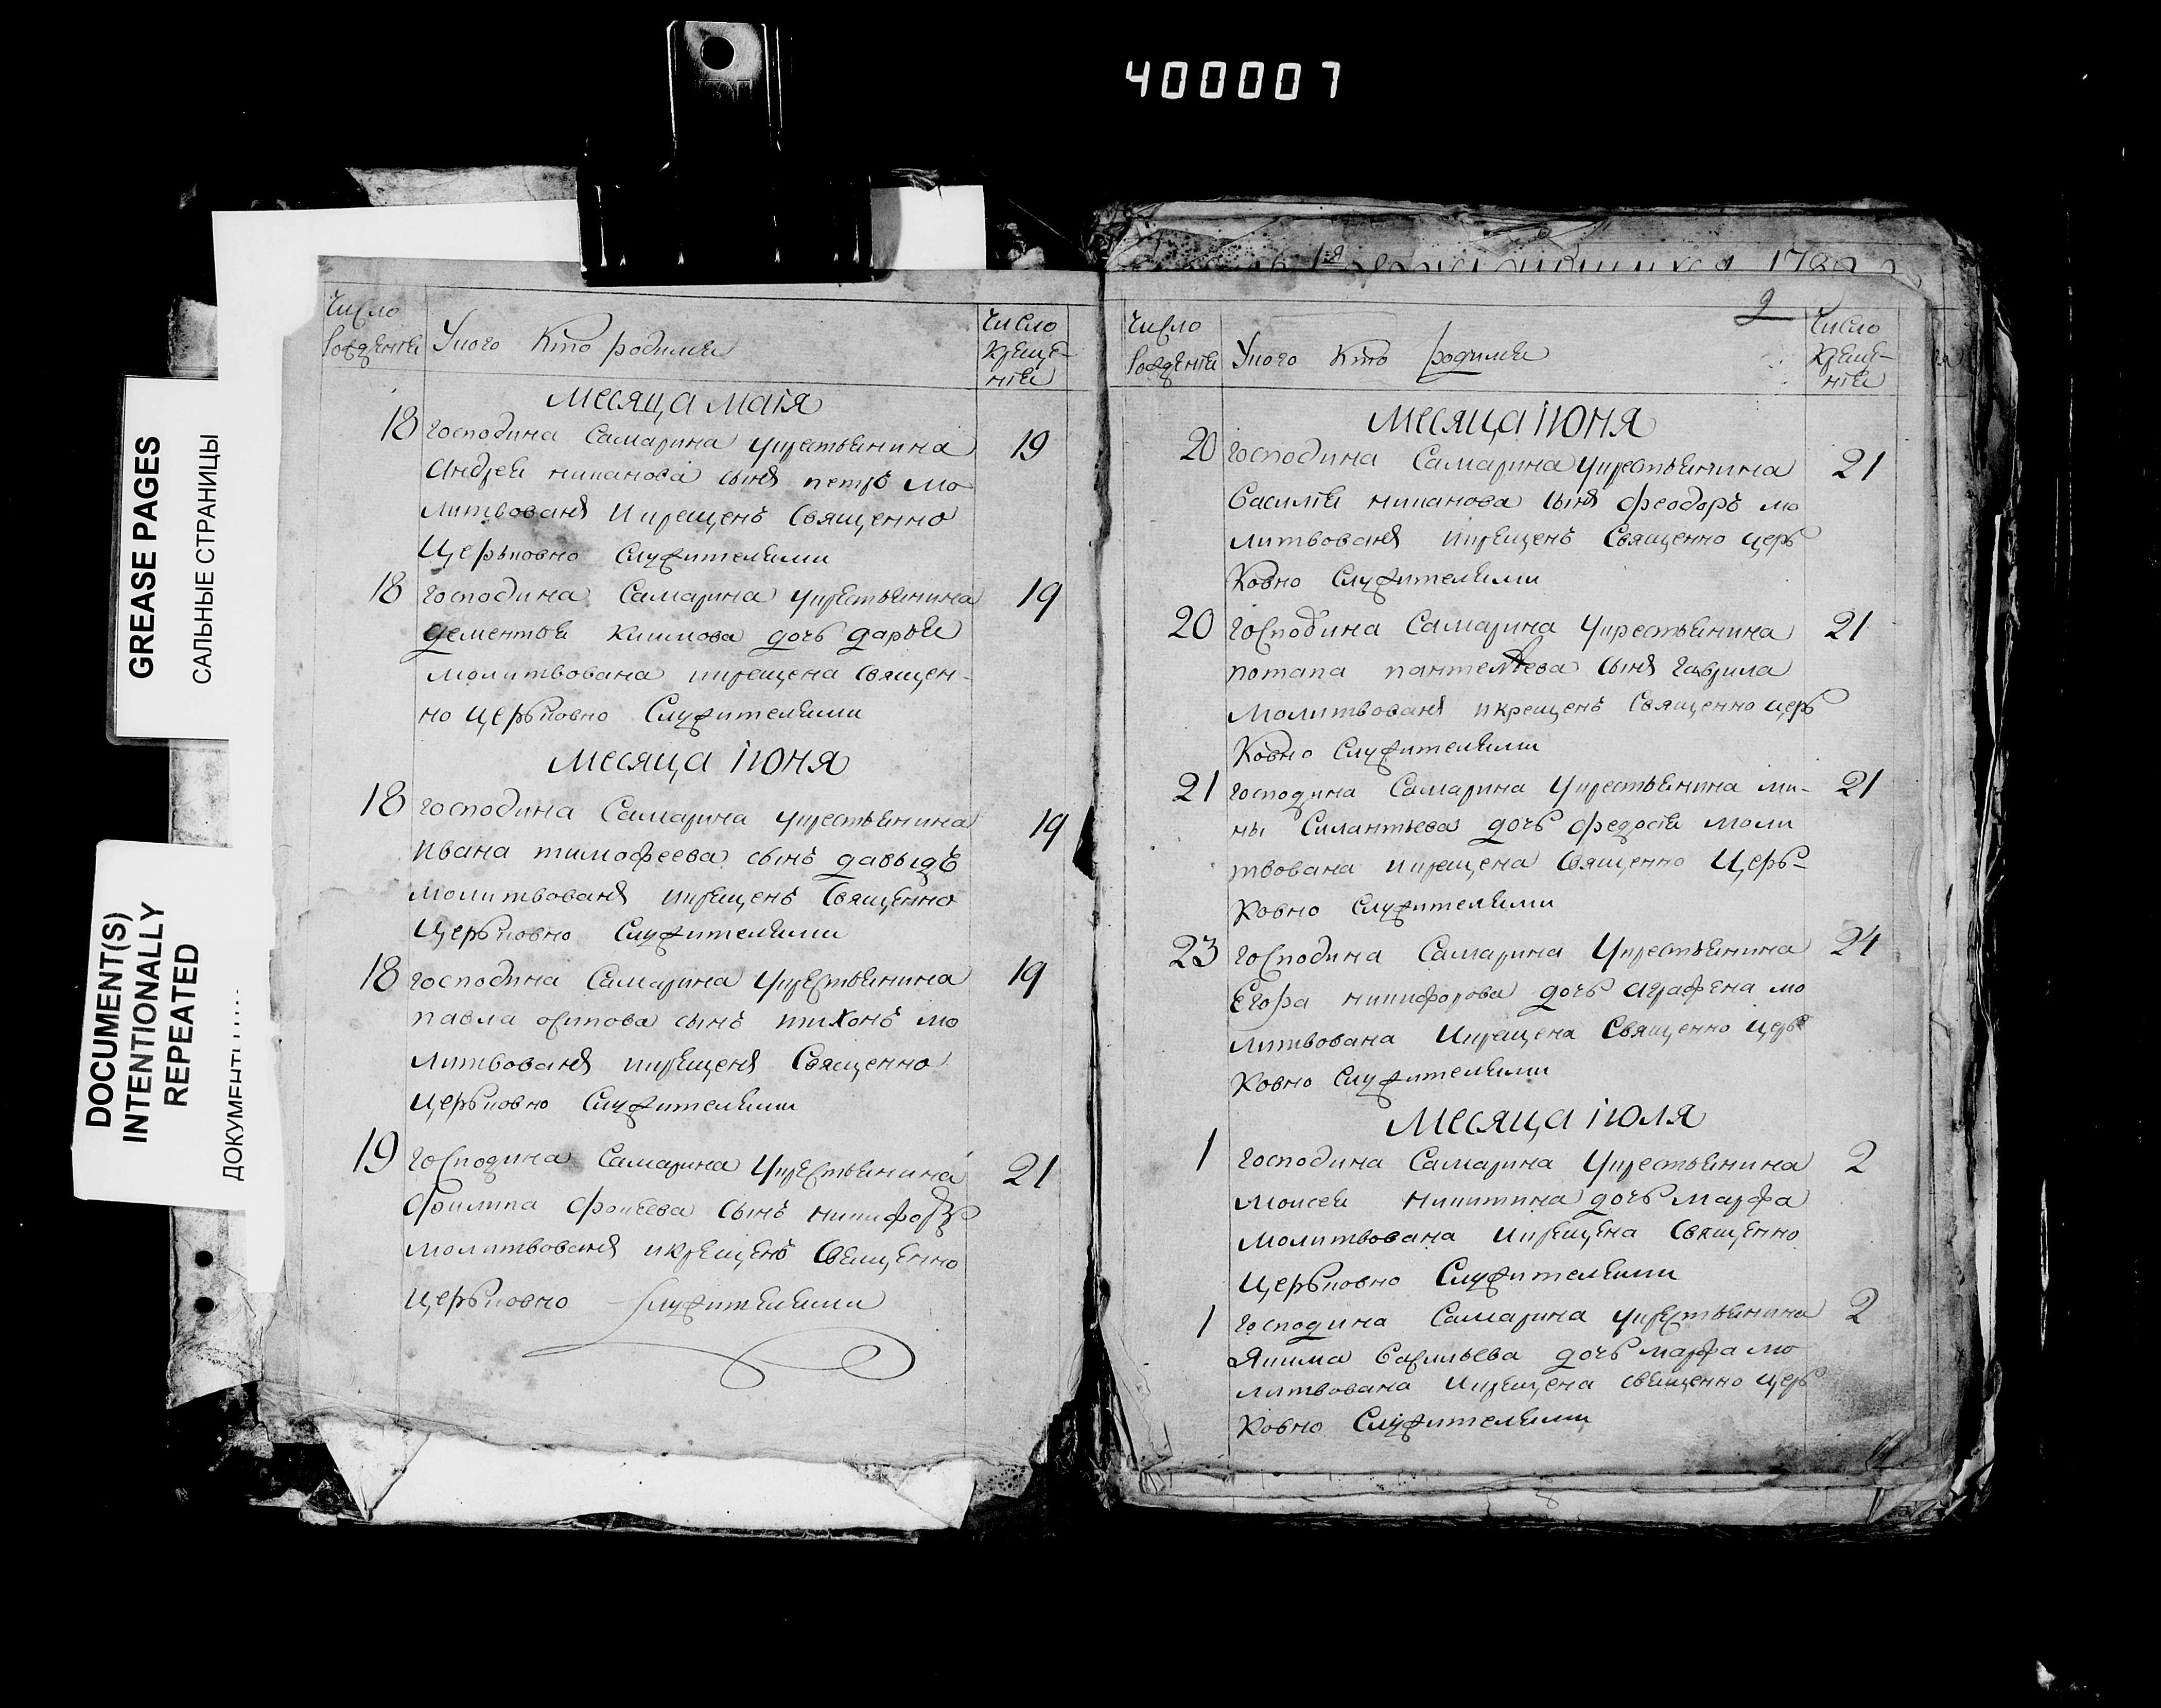 400007
GREASE PAGES
САЛЬНЫЕ СТРАНИЦЫ
DOCUMENT(S)
INTENTIONALLY
REPEATED
Число
рожденiя
Укого Кто родился
Число
Креще-
нiя
Месяца маiя
18 господина Самарина укрестьянина 19
Андрея никанова сынъ петръ мо
литвованъ икрещенъ Священно
Церьковно Служителями
18 господина Самарина укрестьянина 19
дементья Климова дочь дарья
молитвована икрещена Священ-
но Церьковно Служителями
Месяца iюня
18 господина Самарина укрестьянина 19
ивана тимофеева сынъ давыдъ
молитвованъ икрещенъ Священно
Церьковно Служителями
18 господина Самарина укрестьянина 19
павла осипова сынъ тихонъ мо
литвованъ икрещенъ Священно
Церьковно Служителями
19 господина Самарина укрестьянина 21
Филипа Фокеева сынъ никифоръ
молитвованъ икрещенъ Свещенно
Церьковно Служителями
1789
2
Число
рожденiя
Укого Кто родился
Число
Креще-
нiя
Месяца iюня
20 господина Самарина укрестьянина 21
Василiя никанова сынъ феодоръ мо
литвованъ икрещенъ Священно церь
Ковно Служителями
20 господина Самарина укрестьянина 21
потапа пантелѣева сынъ гаврила
Молитвованъ икрещенъ Священно церь
Ковно Служителями
21 господина Самарина укрестьянина ми- 21
ны Силантьева дочь федосiя моли
твована икрещена Священно Церь-
Ковно Служителями
23 господина Самарина укрестьянина 24
Егора никифорова дочь аграфена мо
литвована икрещена Священно церь
Ковно Служителями
Месяца iюля
1 господина Самарина укрестьянина 2
Моисея никитина дочь марфа
Молитвована икрещена Священно
Церьковно Служителями
1 господина Самарина укрестьянина 2
Якима Васильева дочь марфа мо
литвована икрещена свещенно церь
Ковно Служителями